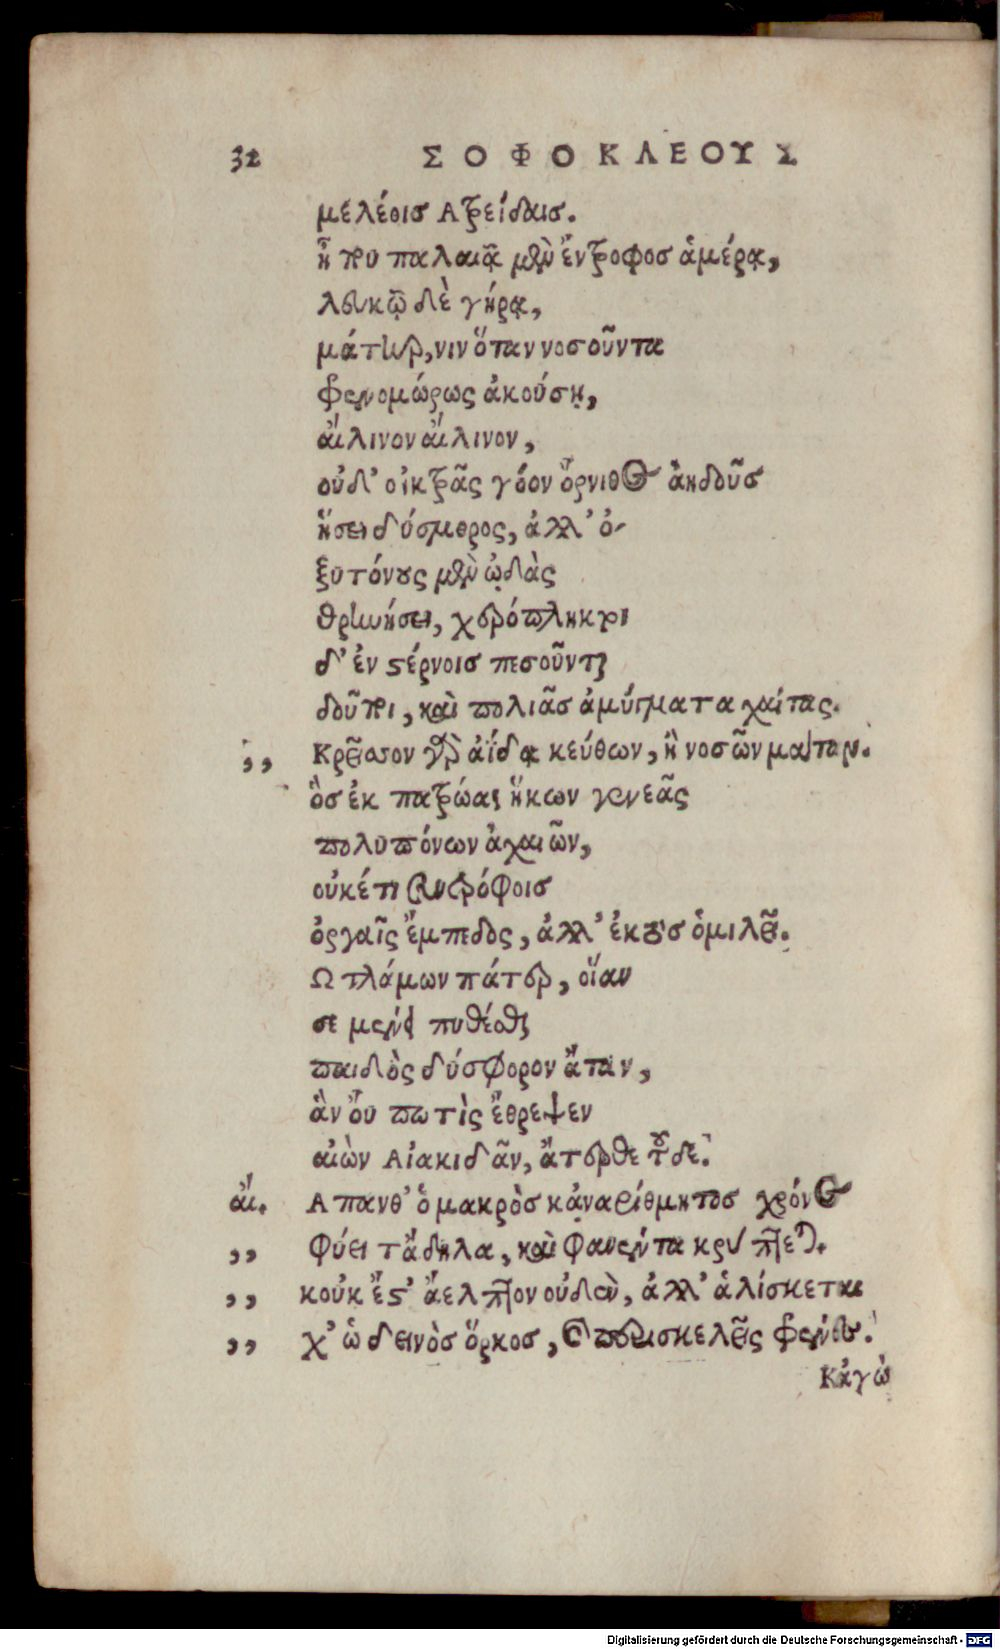 32 ΣΟΦΟΚΛΕΟΥΣ
μελέοις Ατρείδαις.
ἦ που παλαιᾷ μὲν ἔντροφος ἁμέρᾳ,
λευκῷ δὲ γήρᾳ,
μάτηρ, νιν ὅταν νοσοῦντα
φρενομώρως ἀκούσῃ,
αἴλινον αἴλινον,
οὐδ' οἰκτρᾶς γόον ὄρνιθος ἀηδοῦς
ἥσει δύσμορος, ἀλλ' ὀ-
ξυτόνους μὲν ᾠδὰς
θρηνήσει, χερόπληκτοι
δ' ἐν στέρνοισ πεσοῦνται
δοῦποι, καὶ πολιᾶς ἀμύγματα χαίτας.
,, Κρείσσον γὰρ ἀΐδᾳ κεύθων, ἢ νοσῶν μάταν.
ὃς ἐκ πατρῴας ἥκων γενεᾶς
πολυπόνων ἀχαιῶν,
οὐκέτι συντρόφοις
ὀργαῖς ἔμπεδος, ἀλλ' ἐκτὸς ὁμιλεῖ.
Ω τλάμων πάτερ, οἵαν
σε μένει πυθέσθαι
παιδὸς δύσφορον ἄταν,
ἃν οὔ πω τὶς ἔθρεψεν
αἰὼν Αἰακιδᾶν, ἄτερθε τοῦδε.
αἴ. Απανθ' ὁ μακρὸς κἀναρίθμητος χρόνος
,, φύει τ' ἄδηλα, καὶ φανέντα κρύπτεται.
,, κοὐκ ἔστ' ἄελπτον οὐδὲν, ἀλλ' ἁλίσκεται
,, χ' ὡ δεινὸς ὅρκος, καὶ περισκελεῖς φρένες.
Κἀγὼ
Digitalisierung gefördert durch die Deutsche Forschungsgemeinschaft - DFG